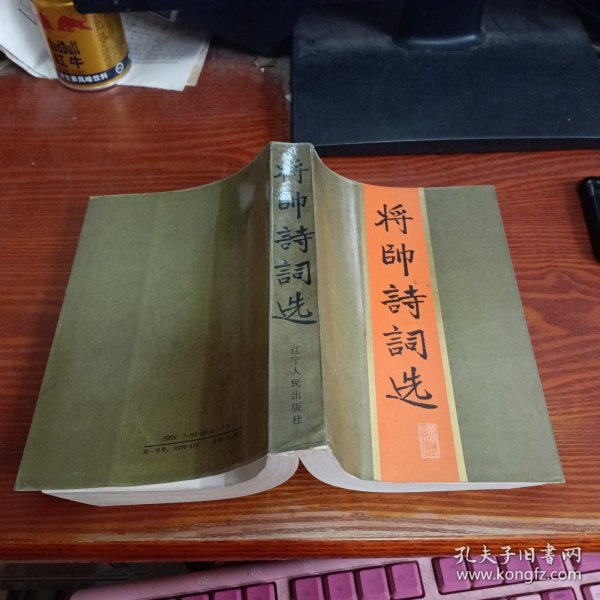 将帥詩詞选
将帥詩詞选
辽宁人民出版社
ISBN 7-205-
统一书号：10090·
RedBull
红牛
风味饮料
孔夫子旧书网
www.kongfz.com